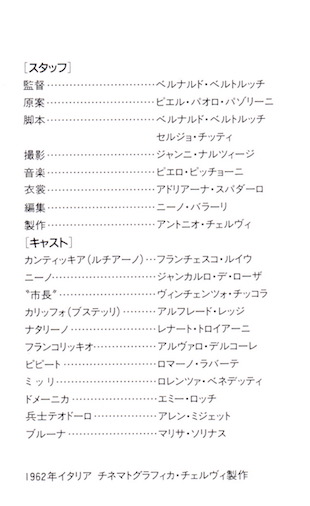 [スタッフ]
監督…………………………ベルナルド・ベルトルッチ
原案…………………………ピエル・パオロ・パゾリーニ
脚本…………………………ベルナルド・ベルトルッチ
セルジョ・チッティ
撮影…………………………ジャンニ・ナルツィージ
音楽…………………………ピエロ・ピッチョーニ
衣裳…………………………アドリアーナ・スパダーロ
編集…………………………ニーノ・バラーリ
製作…………………………アントニオ・チェルヴィ
[キャスト]
カンティッキア(ルチアーノ)…フランチェスコ・ルイウ
ニーノ………………………ジャンカルロ・デ・ローザ
“市長”………………………ヴィンチェンツォ・チッコラ
カリッフォ(ブステッリ)………アルフレード・レッジ
ナタリーノ……………………レナート・トロイアーニ
フランコリッキオ………………アルヴァロ・デルコーレ
ピピート………………………ロマーノ・ラバーテ
ミッリ…………………………ロレンツァ・ベネデッティ
ドメーニカ……………………エミー・ロッチ
兵士テオドーロ………………アレン・ミジェット
ブルーナ………………………マリサ・ソリナス
1962年イタリア チネマトグラフィカ・チェルヴィ製作